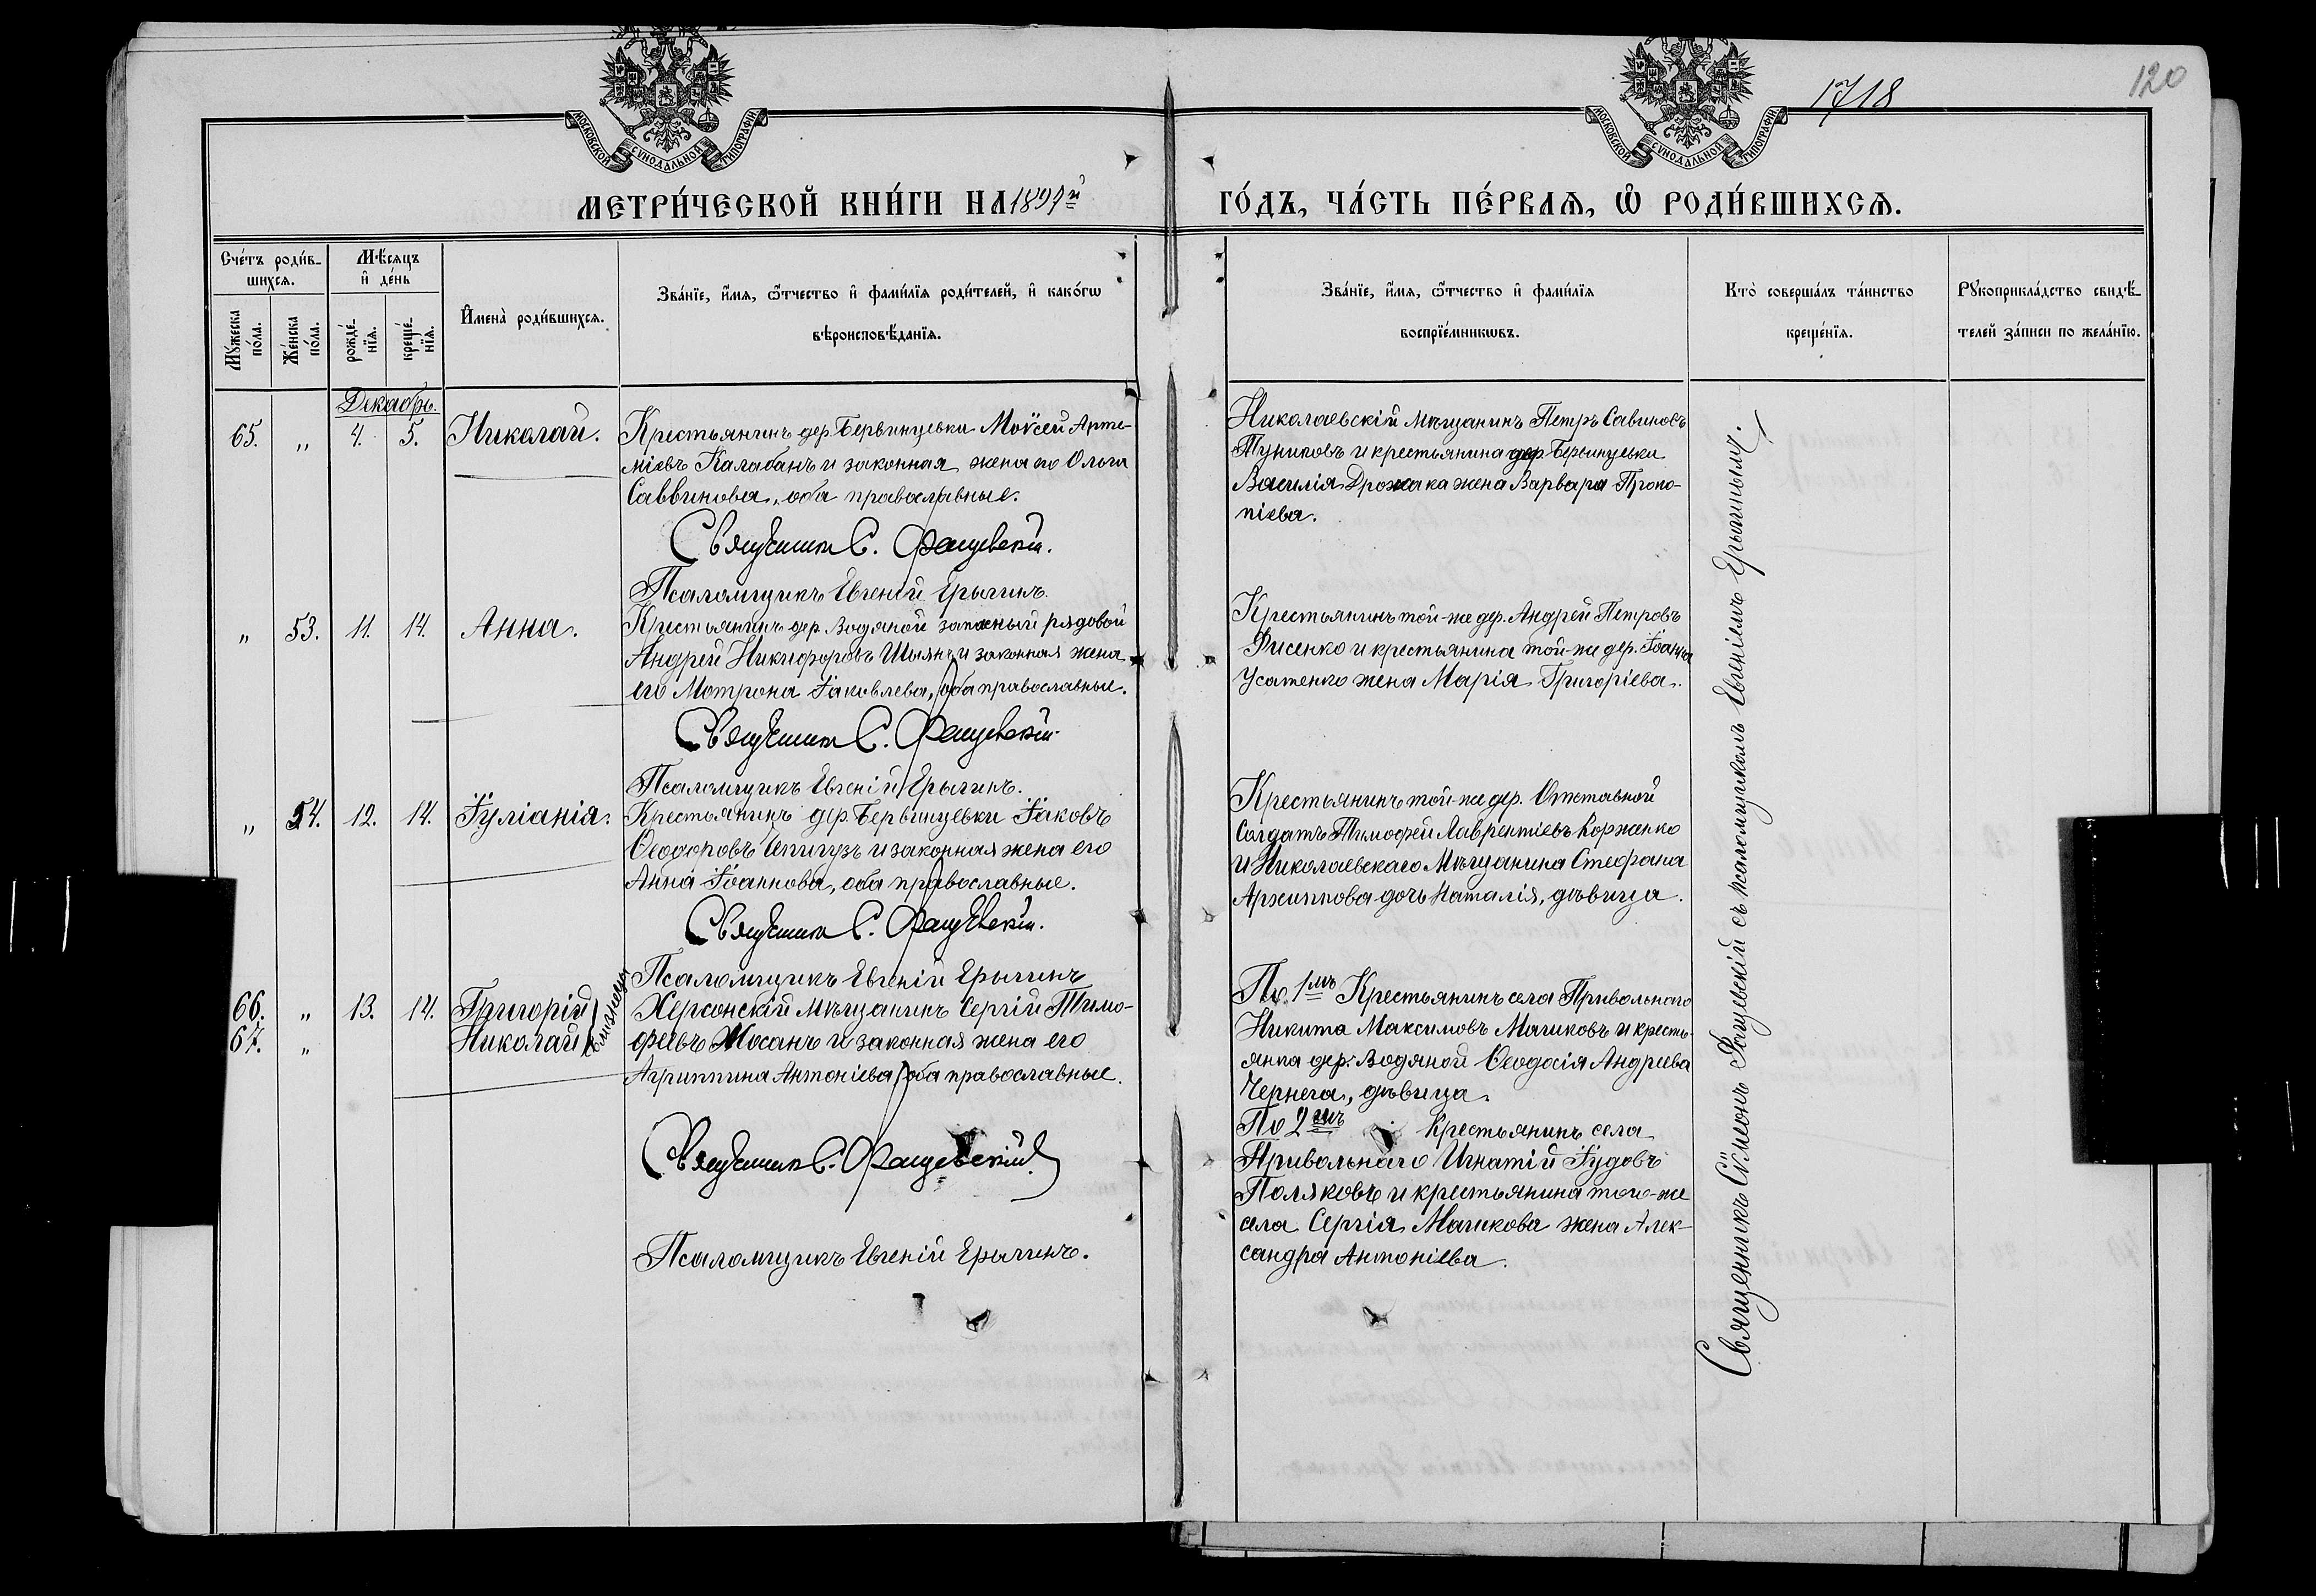 1718
120
МОСКОВСКОЙ СУНОДАЛЬНОЙ ТИПОГРАФІИ
МОСКОВСКОЙ СУНОДАЛЬНОЙ ТИПОГРАФІИ
МЕТРИ́ЧЕСКОЙ КНИ́ГИ НА 1897й
ГО́ДЪ, ЧА́СТЬ ПЕ́РВАѦ, Ѡ҆ РОДИ́ВШИХСѦ.
Сче́тъ роди́в-
шихсѧ.
Мѣ́сяцъ
и҆ де́нь
Мꙋ́жеска
по́ла.
Же́нска
по́ла.
рожде́-
нїѧ.
креще́-
нїѧ.
И҆мена̀ роди́вшихсѧ.
Зва́нїе, и҆́мѧ, ѻ҆́тчество и҆ фами́лїѧ роди́телей, и҆ како́гѡ
вѣроисповѣ́данїѧ.
Зва́нїе, и҆́мѧ, ѻ҆́тчество и҆ фами́лїѧ
воспрїе́мникѡвъ.
Кто̀ соверша́лъ та́инство
креще́нїѧ.
Рꙋкоприкла́дство свидѣ́-
телей за́писи по жела́нїю.
Декабрь.
65. „ 4. 5. Николай.
Крестьянинъ дер. Бервинцевки Моѵсей Арте-
міевъ Калабанъ и законная жена его Ольга
Саввинова, оба православные.
Священникъ С. Фащевскій.
Псаломщикъ Евгеній Ерыгинъ.
Николаевскій мѣщанинъ Петръ Савиновъ
Туниковъ и крестьянина дер. Бервинцевки
Василія Дрожака жена Варвара Проко-
піева.
„ 53. 11. 14. Анна.
Крестьянинъ дер. Водяной запасный рядовой
Андрей Никифоровъ Шіянъ и законная жена
его Мотрона Іаковлева, оба православные.
Священникъ С. Фащевскій.
Псаломщикъ Евгеній Ерыгинъ.
Крестьянинъ той-же дер. Андрей Петровъ
Фисенко и крестьянина той-же дер. Іоанна
Усатенко жена Марія Григоріева.
„ 54. 12. 14. Іуліанія.
Крестьянинъ дер. Бервинцевки Іаковъ
Ѳеодоровъ и законная жена его
Анна Іоаннова, оба православные.
Священникъ С. Фащевскій.
Псаломщикъ Евгеній Ерыгинъ
Крестьянинъ той-же дер. Отставной
Солдатъ Тимофей Лаврентіевъ Корженко
и Николаевскаго мѣщанина Стефана
Архиппова дочь Наталія, дѣвица.
66. „ 13. 14. Григорій
67. „ Николай
близнецы
Херсонскій мѣщанинъ Сергій Тимо-
феевъ Мосанъ и законная жена его
Агриппина Антоніева, оба православные.
Священникъ С. Фащевскій.
Псаломщикъ Евгеній Ерыгинъ.
По 1мъ Крестьянинъ села Привольнаго
Никита Максимовъ Магиковъ и кресть-
янка дер. Водяной Ѳеодосія Андреева
Чернега, дѣвица.
По 2мъ Крестьянинъ села
Привольнаго Игнатій Іудовъ
Поляковъ и крестьянина того-же
села Сергія Магикова жена Алек-
сандра Антоніева.
Священникъ Сѵмеонъ Фащевскій съ псаломщикомъ Евгеніемъ Ерыгинымъ.